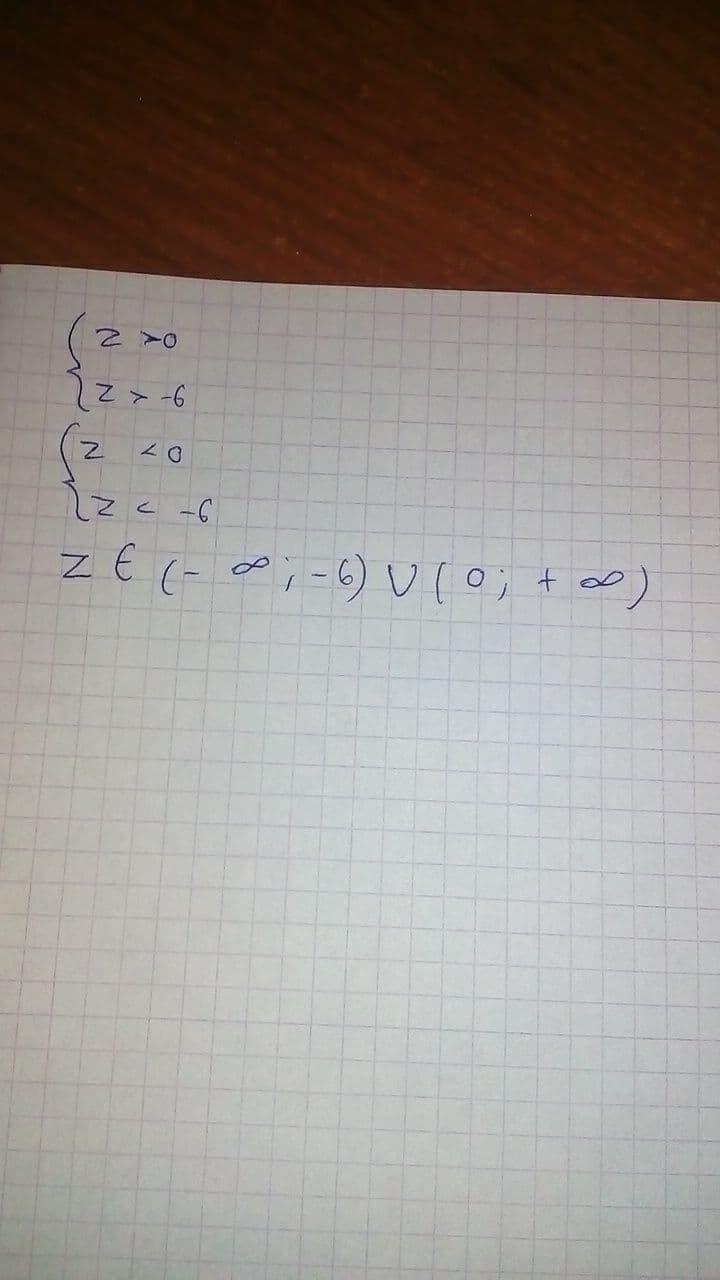 { z > 0
z > -6
{ z < 0
z < -6
z ∈ (- ∞ ; -6) ∪ ( 0 ; + ∞ )